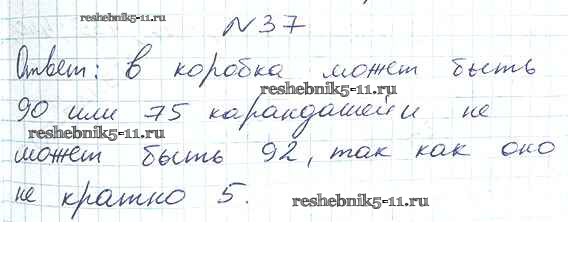 №37
reshebnik5-11.ru
Ответ: в коробка может быть
reshebnik5-11.ru
90 или 75 карандашей и не
reshebnik5-11.ru
может быть 92, так как оно
не кратно 5.
reshebnik5-11.ru